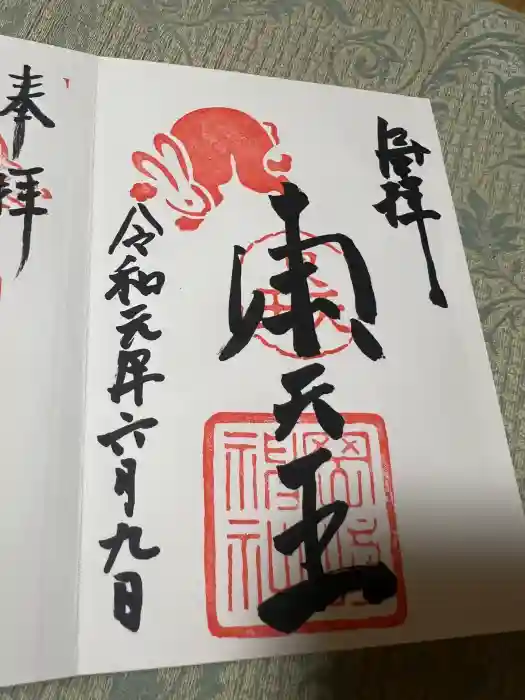 拝
東天王
岡崎神社
令和元年六月九日
奉拝